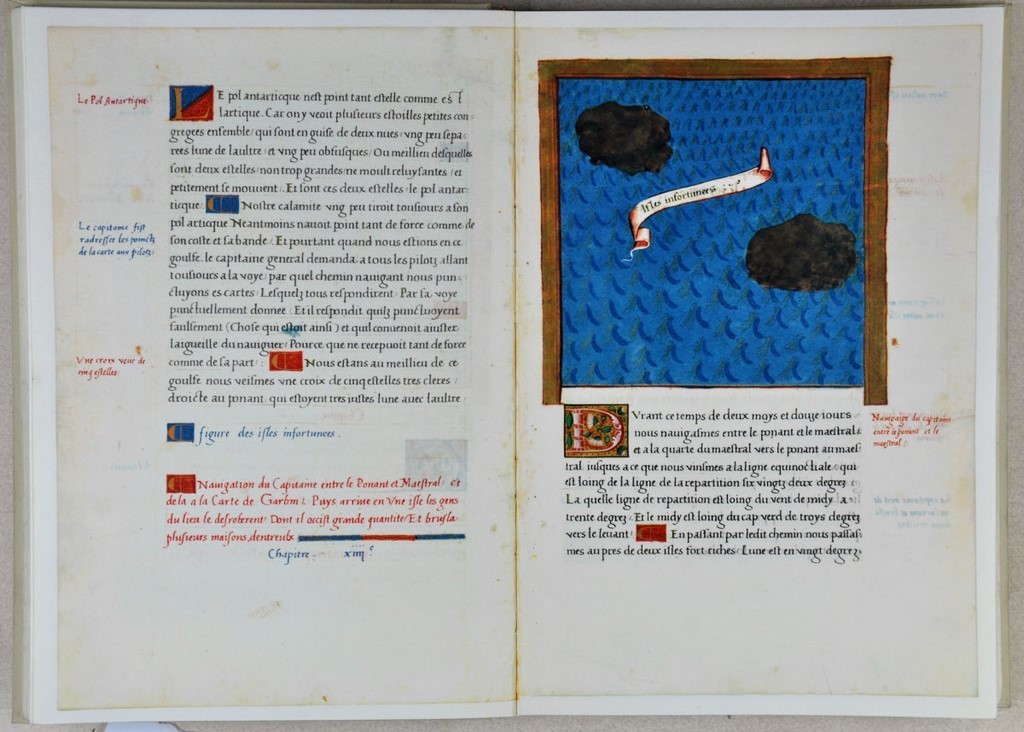 Le Pol Antartigne.
LE pol antarticque nest point tant estelle comme est
lartique. Car on y veoit plusieurs estoilles petites con
gregees ensemble / qui sont en guise de deux nues / vng peu sepa
rees lune de laultre / et vng peu obfusques / Ou meillieu desquelles
sont deux estelles / non trop grandes ne moult reluysantes / et
petitement se mouuent /. Et sont ces deux estelles / le pol antar
ticque. Nostre calamite vng peu tiroit tousiours a son
pol articque Neantmoins nauoit point tant de force comme de
son coste et sa bande /. Et pourtant quand nous estions en ce
goulfe, le capitaine general demanda a tous les pilotz allant
tousiours a la voye / par quel chemin nauigant nous pun
ctuyons es cartes / Lesquelz tous respondirent / Par sa voye
punctuellement donnee / Et il respondit quilz punctuoyent
faulsement (Chose qui estoit ainsi) et quil conuenoit aiuster
laigueille du nauiguer / Pource que ne receuoit tant de force
comme de sa part / Nous estans au meillieu de ce
goulfe nous veismes vne croix de cinq estelles tres cleres /
droicte au ponant, qui estoyent tres iustes lune auec laultre /
Le capitaine fist
radresser les poinctz
de la carte aux pilotz
Vne croix veue de
cinq estelles.
figure des isles infortunees.
Navigation du Capitaine entre le Ponant et Maestral / et
de la a la Carte de Garbin /. Puys arriue en Vne isle les gens
du lieu le desroberent / Dont il occist grande quantite / Et brusla
plusieurs maisons dentreulx
Chapitre xiiij e
Isles infortunees
DVrant ce temps de deux moys et douze iours
nous nauigasmes entre le ponant et le maestral
et a la quarte du maestral vers le ponant au maes
tral iusques a ce que nous vinsmes a la ligne equinoctiale / qui
est loing de la ligne de la repartition six vingtz deux degrez
La quelle ligne de repartition est loing du vent de midy a
trente degrez / Et le midy est loing du cap verd de troys degrez
vers le leuant / En passant par ledit chemin nous passas
mes au pres de deux isles fort riches / Lune est en vingt degrez
Nauigaige du capitaine
entre le ponant et le
maestral